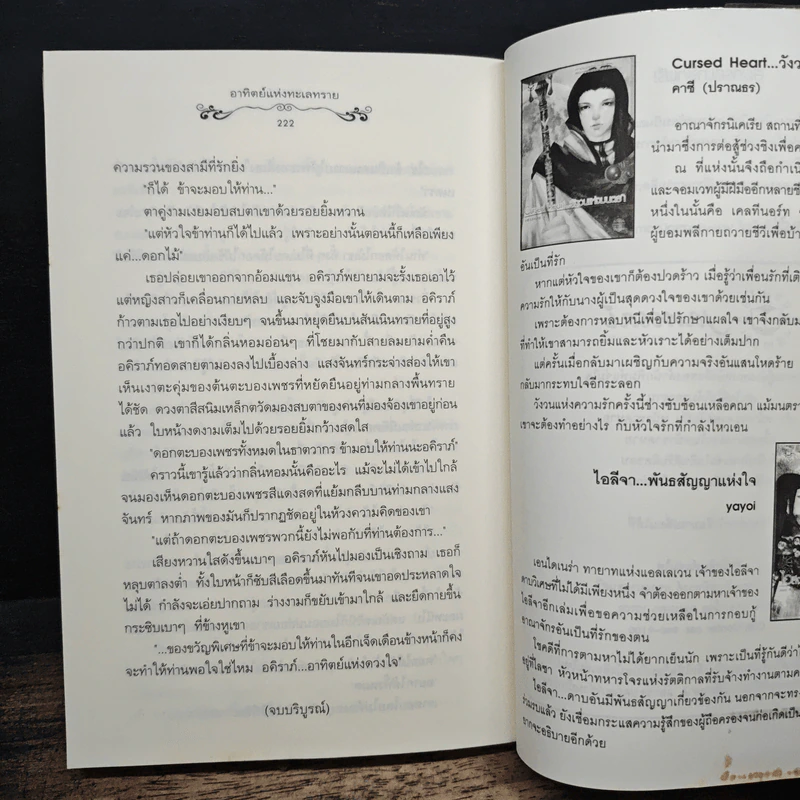 อาทิตย์แห่งทะเลทราย
222
ความรวนของสามีที่รักยิ่ง
"ก็ได้ ข้าจะมอบให้ท่าน..."
ตาคู่งามเงยมอบสบตาเขาด้วยรอยยิ้มหวาน
"แต่หัวใจข้าท่านก็ได้ไปแล้ว เพราะอย่างนั้นตอนนี้ก็เหลือเพียง
แค่...ดอกไม้"
เธอปล่อยเขาออกจากอ้อมแขน อคิราภ์พยายามจะรั้งเธอเอาไว้
แต่หญิงสาวก็เคลื่อนกายหลบ และจับจูงมือเขาให้เดินตาม อคิราภ์
ก้าวตามเธอไปอย่างเงียบๆ จนขึ้นมาหยุดยืนบนสันเนินทรายที่อยู่สูง
กว่าปกติ เขาก็ได้กลิ่นหอมอ่อนๆ ที่โชยมากับสายลมยามค่ำคืน
อคิราภ์ทอดสายตามองลงไปเบื้องล่าง แสงจันทร์กระจ่างส่องให้เขา
เห็นเงาตะคุ่มของต้นตะบองเพชรที่หยัดยืนอยู่ท่ามกลางพื้นทราย
ได้ชัด ดวงตาสีสนิมเหล็กตวัดมองสบตาของคนที่มองจ้องเขาอยู่ก่อน
แล้ว ใบหน้างดงามเต็มไปด้วยรอยยิ้มกว้างสดใส
"ดอกตะบองเพชรทั้งหมดในซาตวากร ข้ามอบให้ท่านนะอคิราภ์"
คราวนี้เขารู้แล้วว่ากลิ่นหอมนั้นคืออะไร แม้จะไม่ได้เข้าไปใกล้
จนมองเห็นดอกตะบองเพชรสีแดงสดที่แย้มกลีบบานท่ามกลางแสง
จันทร์ หากภาพของมันก็ปรากฏชัดอยู่ในห้วงความคิดของเขา
"แต่ถ้าดอกตะบองเพชรพวกนี้ยังไม่พอกับที่ท่านต้องการ..."
เสียงหวานใสดังขึ้นเบาๆ อคิราภ์หันไปมองเป็นเชิงถาม เธอก็
หลุบตาลงต่ำ ทั้งใบหน้าก็ซับสีเลือดขึ้นมาทันทีจนเขาอดประหลาดใจ
ไม่ได้ กำลังจะเอ่ยปากถาม ร่างงามก็ขยับเข้ามาใกล้ และยืดกายขึ้น
กระซิบเบาๆ ที่ข้างหูเขา
"...ของขวัญพิเศษที่ข้าจะมอบให้ท่านในอีกเจ็ดเดือนข้างหน้าก็คง
จะทำให้ท่านพอใจใช่ไหม อคิราภ์...อาทิตย์แห่งดวงใจ"
(จบบริบูรณ์)
Cursed Heart...วังว
คาซี (ปราณธร)
อาณาจักรนิเคเรีย สถานที่
นำมาซึ่งการต่อสู้ช่วงชิงเพื่อค
ณ ที่แห่งนั้นจึงถือกำเนิ
และจอมเวทผู้มีฝีมืออีกหลายชี
หนึ่งในนั้นคือ เคลทีนอร์ท
ผู้ยอมพลีกายถวายชีวีเพื่อบ้า
อันเป็นที่รัก
หากแต่หัวใจของเขาก็ต้องปวดร้าว เมื่อรู้ว่าเพื่อนรักที่เติ
ความรักให้กับนางผู้เป็นสุดดวงใจของเขาด้วยเช่นกัน
เพราะต้องการหลบหนีเพื่อไปรักษาแผลใจ เขาจึงกลับม
ที่ทำให้เขาสามารถยิ้มและหัวเราะได้อย่างเต็มปาก
แต่ครั้นเมื่อกลับมาเผชิญกับความจริงอันแสนโหดร้าย
กลับมากระทบใจอีกระลอก
วังวนแห่งความรักครั้งนี้ช่างซับซ้อนเหลือคณา แม้มนตรา
เขาจะต้องทำอย่างไร กับหัวใจรักที่กำลังไหวเอน
ไอลีจา...พันธสัญญาแห่งใจ
yayoi
เอนไดเนร่า ทายาทแห่งแอลเลเวน เจ้าของไอลีจา
ดาบวิเศษที่ไม่ได้มีเพียงหนึ่ง จำต้องออกตามหาเจ้าของ
ไอลีจาอีกเล่มเพื่อขอความช่วยเหลือในการกอบกู้
อาณาจักรอันเป็นที่รักของตน
โชคดีที่การตามหาไม่ได้ยากเย็นนัก เพราะเป็นที่รู้กันดีว่าไ
อยู่ที่ไลซา หัวหน้าทหารโจรแห่งรัตติกาลที่รับจ้างทำงานตามค
ไอลีจา...ดาบอันมีพันธสัญญาเกี่ยวข้องกัน นอกจากจะทรง
ร่วมรบแล้ว ยังเชื่อมกระแสความรู้สึกของผู้ถือครองจนก่อเกิดเป็น
ยากจะอธิบายอีกด้วย